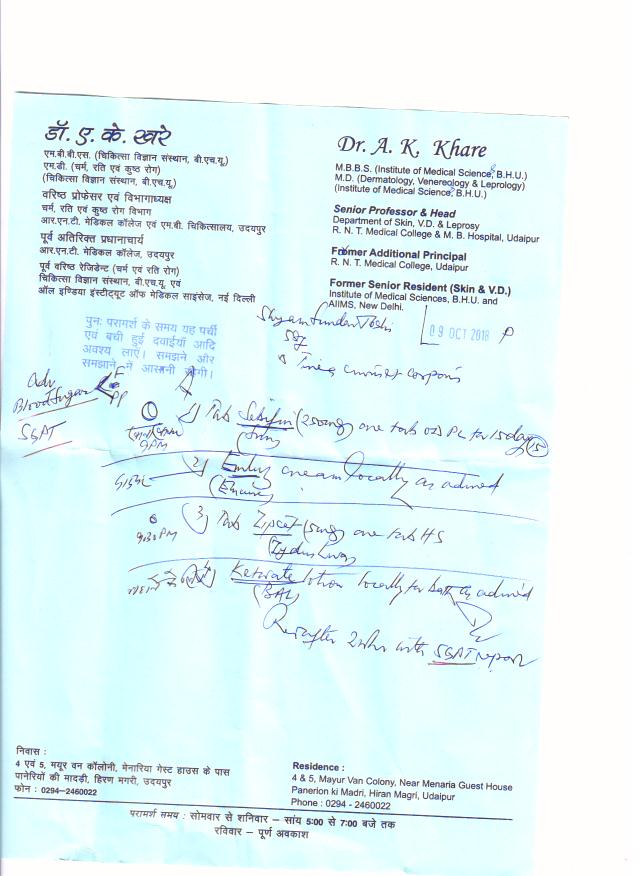 डॉ. ए. के. खरे
एम.बी.बी.एस. (चिकित्सा विज्ञान संस्थान, बी.एच.यू.)
एम.डी. (चर्म, रति एवं कुष्ठ रोग)
(चिकित्सा विज्ञान संस्थान, बी.एच.यू.)
वरिष्ठ प्रोफेसर एवं विभागाध्यक्ष
चर्म, रति एवं कुष्ठ रोग विभाग
आर.एन.टी. मेडिकल कॉलेज एवं एम.बी. चिकित्सालय, उदयपुर
पूर्व अतिरिक्त प्रधानाचार्य
आर.एन.टी. मेडिकल कॉलेज, उदयपुर
पूर्व वरिष्ठ रेजिडेन्ट (चर्म एवं रति रोग)
चिकित्सा विज्ञान संस्थान, बी.एच.यू. एवं
ऑल इण्डिया इंस्टीट्यूट ऑफ मेडिकल साइंसेज, नई दिल्ली
Dr. A. K. Khare
M.B.B.S. (Institute of Medical Science, B.H.U.)
M.D. (Dermatology, Venereology & Leprology)
(Institute of Medical Science, B.H.U.)
Senior Professor & Head
Department of Skin, V.D. & Leprosy
R. N. T. Medical College & M. B. Hospital, Udaipur
Former Additional Principal
R. N. T. Medical College, Udaipur
Former Senior Resident (Skin & V.D.)
Institute of Medical Sciences, B.H.U. and
AIIMS, New Delhi.
पुनः परामर्श के समय यह पर्ची
एवं बची हुई दवाईयाँ आदि
अवश्य लाएं। समझने और
समझाने में आसानी होगी।
Shyam Sunder
09 OCT 2018 P
Tinea cruris et corporis
Adv
Blood Sugar F
PP
SGPT
1) Tab (250mg) one tab OD PC for 15 days (15)
9PM
2) cream locally as advised
3) Tab Zipcet (5mg) one tab HS
9:30PM
lotion locally for bath as advised
Rev after 2 wks with SGPT report
निवास :
4 एवं 5, मयूर वन कॉलोनी, मेनारिया गेस्ट हाउस के पास
पानेरियों की मादड़ी, हिरण मगरी, उदयपुर
फोन : 0294-2460022
Residence :
4 & 5, Mayur Van Colony, Near Menaria Guest House
Panerion ki Madri, Hiran Magri, Udaipur
Phone : 0294 - 2460022
परामर्श समय : सोमवार से शनिवार – सांय 5:00 से 7:00 बजे तक
रविवार – पूर्ण अवकाश